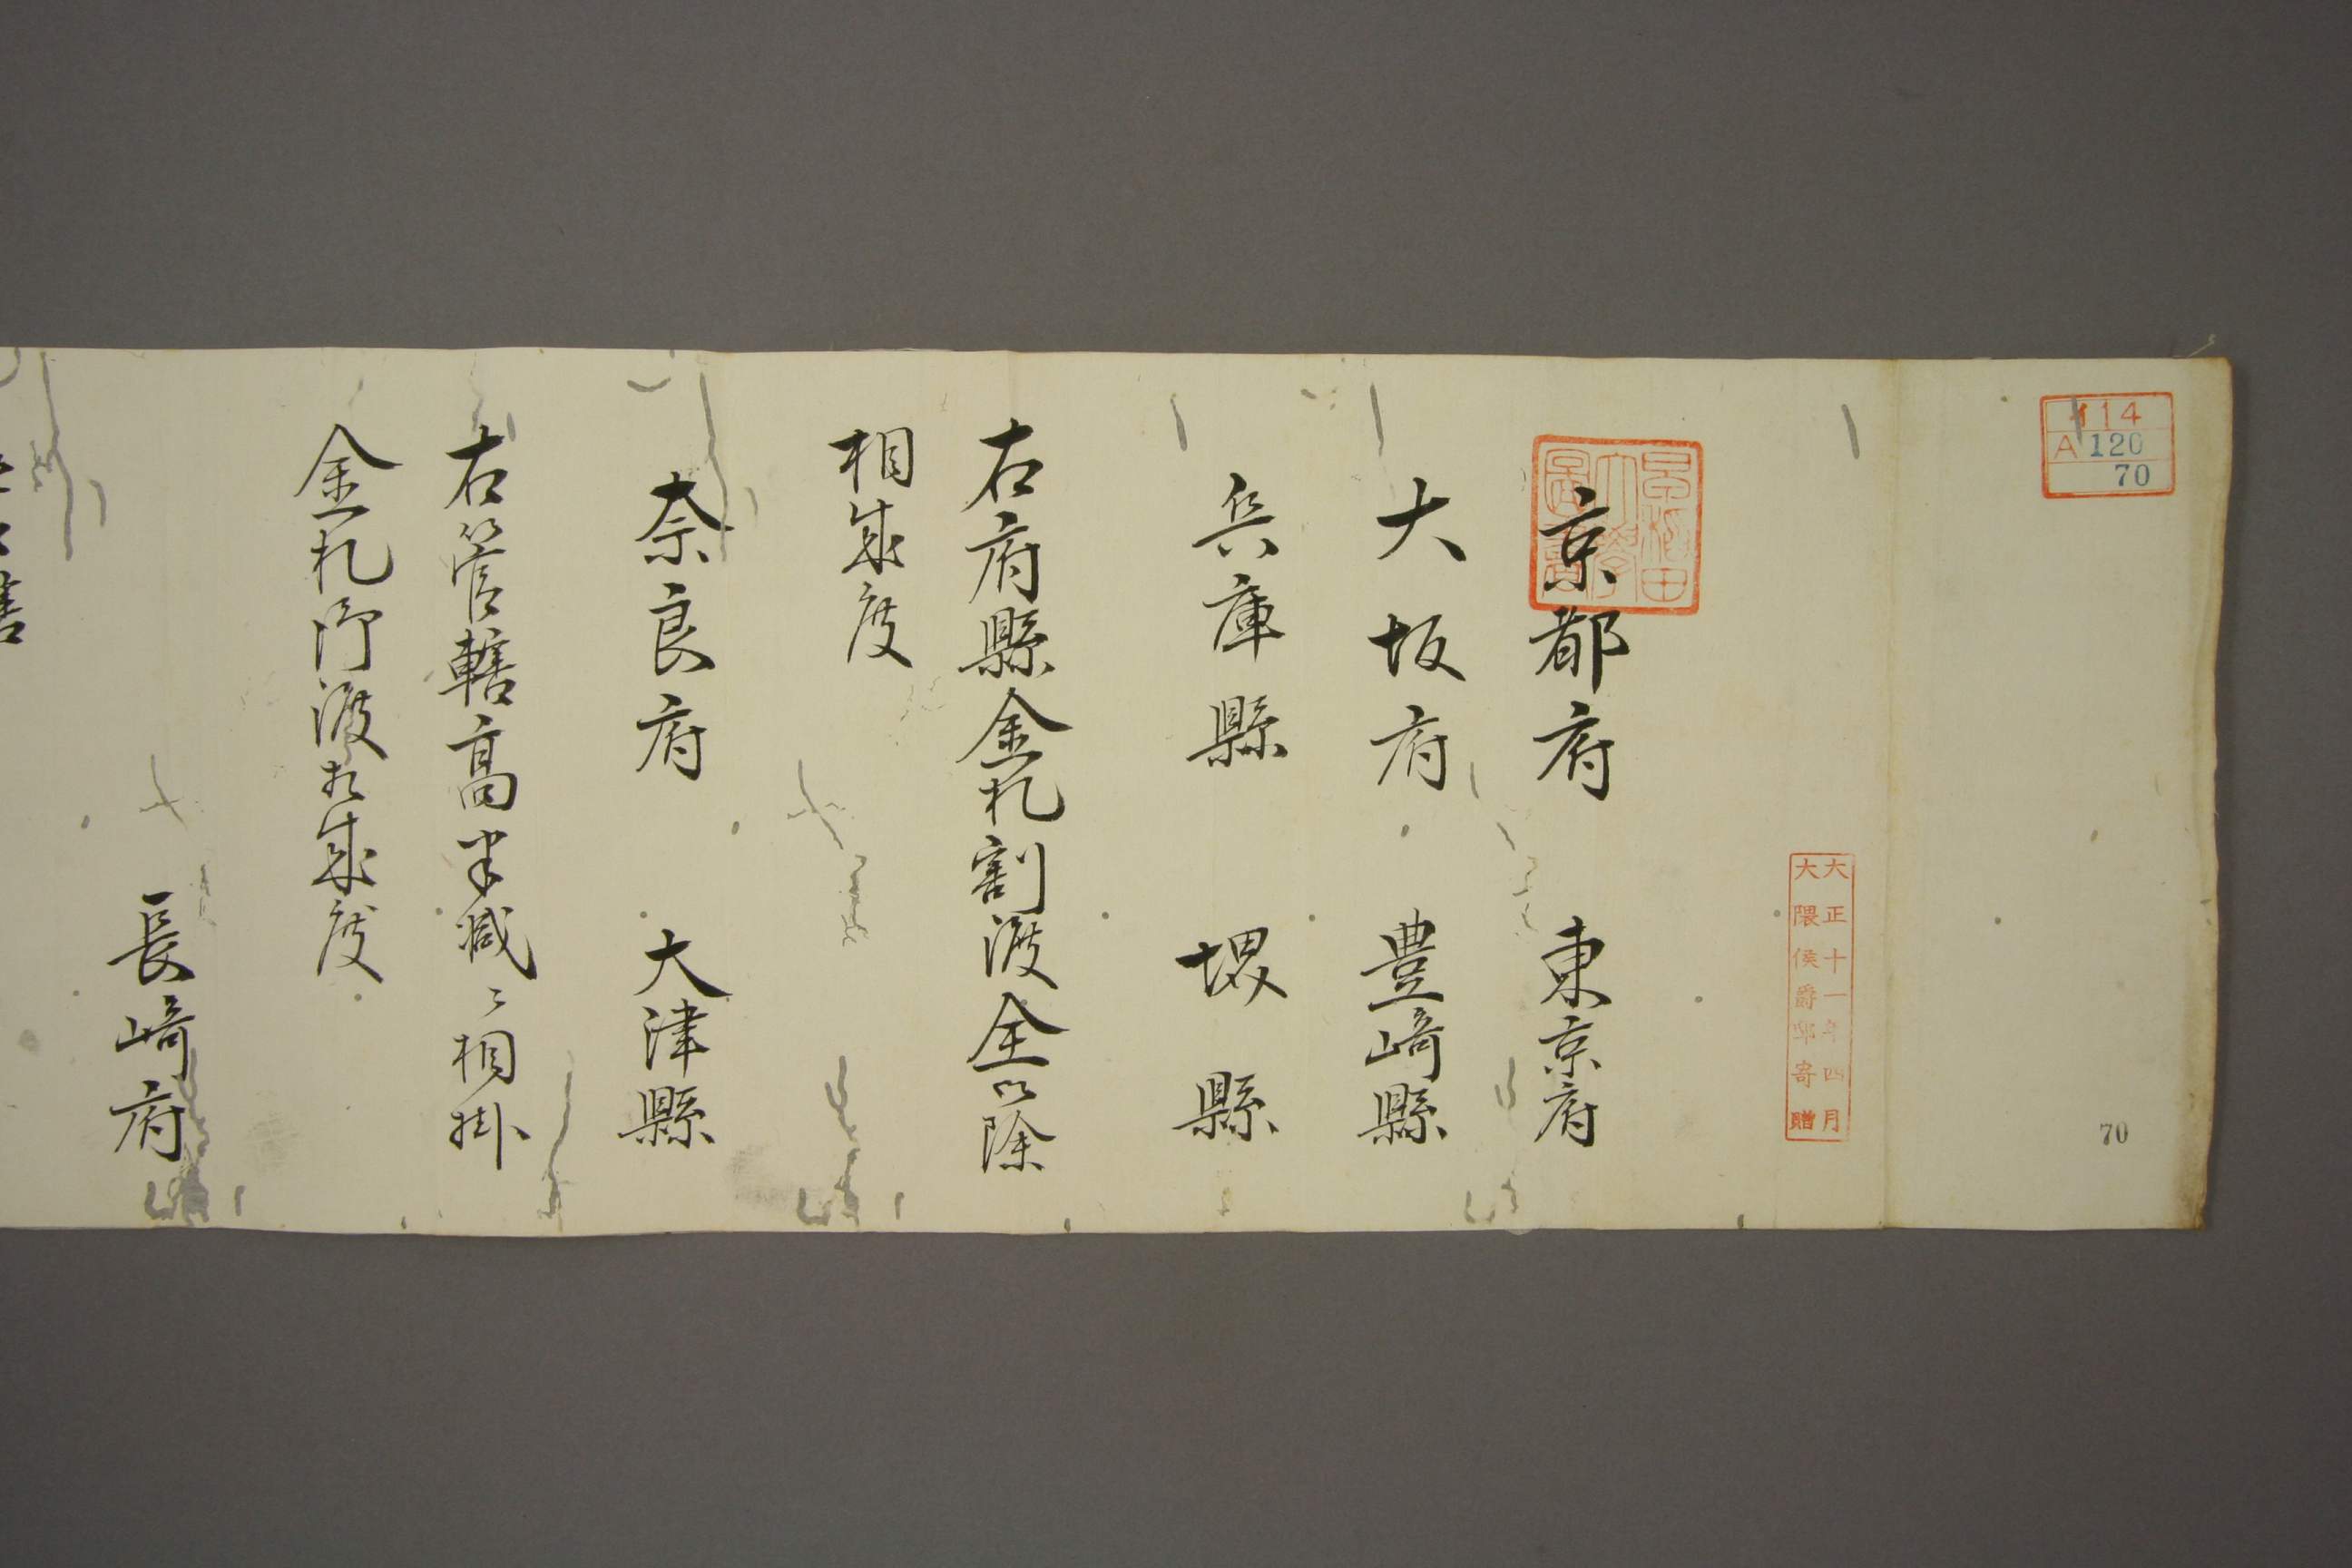 114
A 120
70
70
大正十一年四月
大隈侯爵邸寄贈
早稲田大學圖書
京都府 東京府
大坂府 豊崎縣
兵庫縣 堺縣
右府縣金札割渡全以除
相成度
奈良府 大津縣
右管轄高半減ニ相掛
金札御渡相成度
長崎府